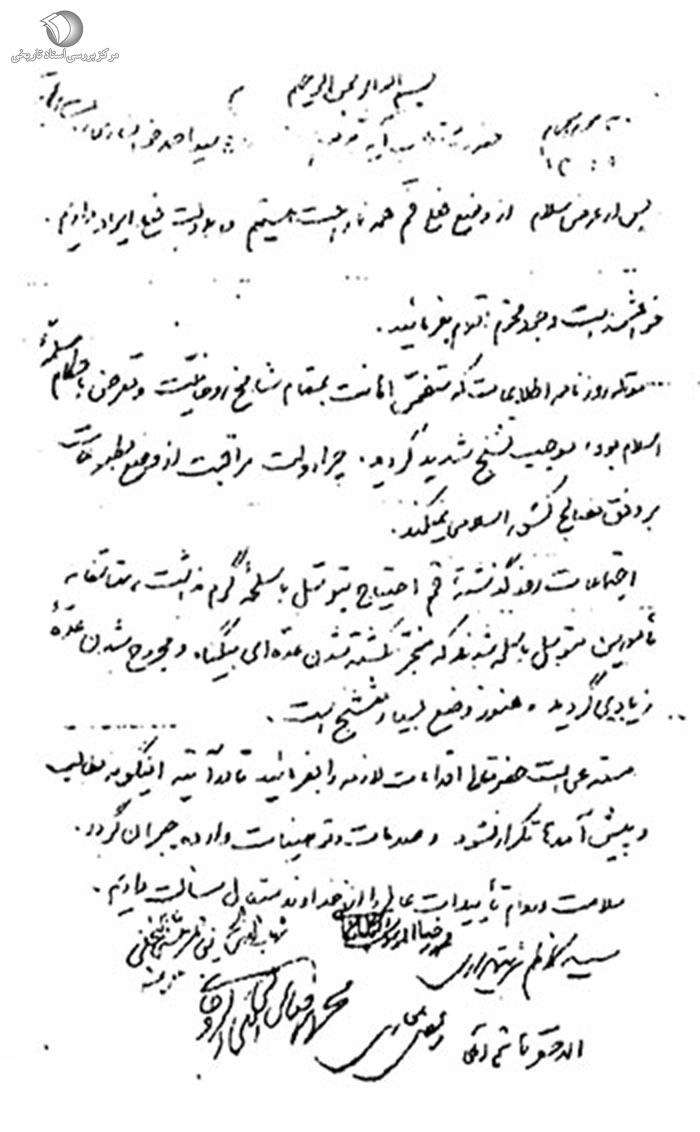 مرکز بررسی اسناد تاریخی
بسم الله الرحمن الرحیم
حضرت آیة سید احمد خوانساری
پس از عرض سلام از وضع فعلی قم همه ناراحت هستیم و بدولت فعلی ایراد داریم.
خواهشمند است وجود محترم اقدام بفرمائید.
مقاله روزنامه اطلاعات که متضمن اهانت بمقام شامخ روحانیت و تعرض باحکام مسلمهٔ
اسلام بود، موجب تشنج شدید گردید. چرا دولت مراقبت از وضع مطبوعات
بر وفق مصالح کشور اسلامی نمیکند.
اجتماعات روز گذشتهٔ قم احتیاج بتوسل باسلحهٔ گرم نداشت، متاسفانه
مأمورین متوسل باسلحه شدند که منجر بکشته شدن عده‌ای بیگناه و مجروح شدن عدهٔ
زیادی گردید، هنوز وضع بسیار متشنج است.
مستدعی است حضرتعالی اقدامات لازمه را بفرمائید تا در آتیه اینگونه مطالب
و پیش آمدها تکرار نشود و صدمات و توهینات وارده جبران گردد.
سلامت و دوام تأییدات عالی را از خداوند متعال مسألت داریم.
شهاب الدین الحسینی المرعشی النجفی
سید کاظم شریعتمداری
محمد رضا الموسوی الگلپایگانی
الاحقر هاشم آملی